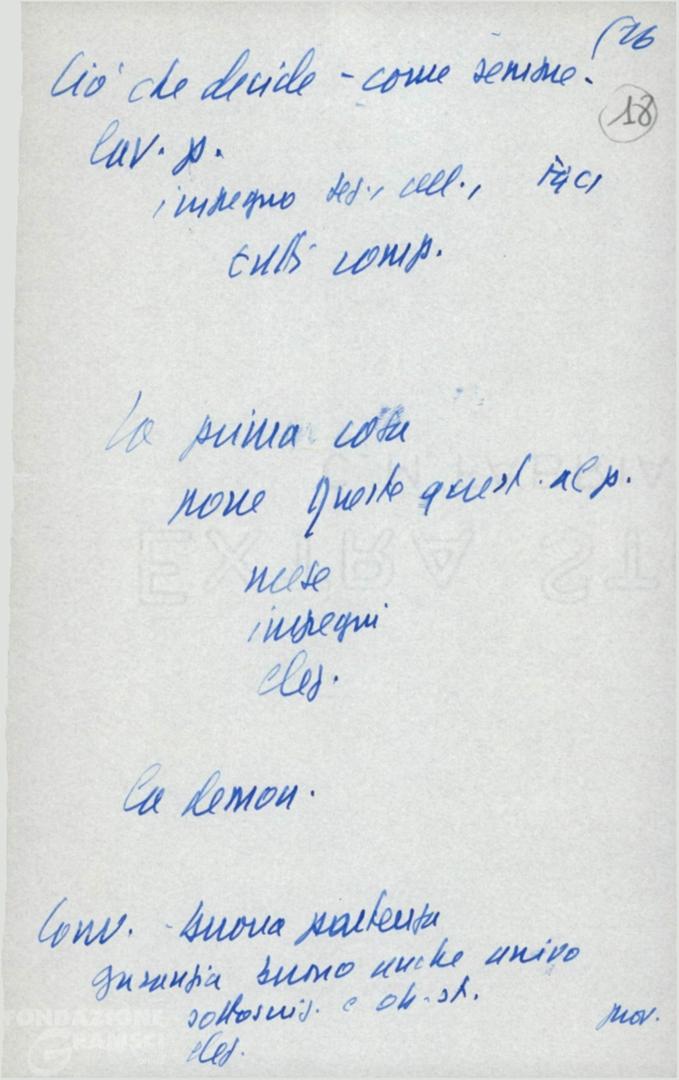 (76
18
Ciò che decide - come sempre -
lav. p.
impegno sez., cell.,
tutti comp.
La prima cosa
porre queste quest. al p.
mese
impegni
elez.
La demon.
Conv. - buona partenza
garanzia buono anche arrivo
sottoscriz.
elez.
prov.
EXTRA ST
FONDAZIONE
GRAMSCI